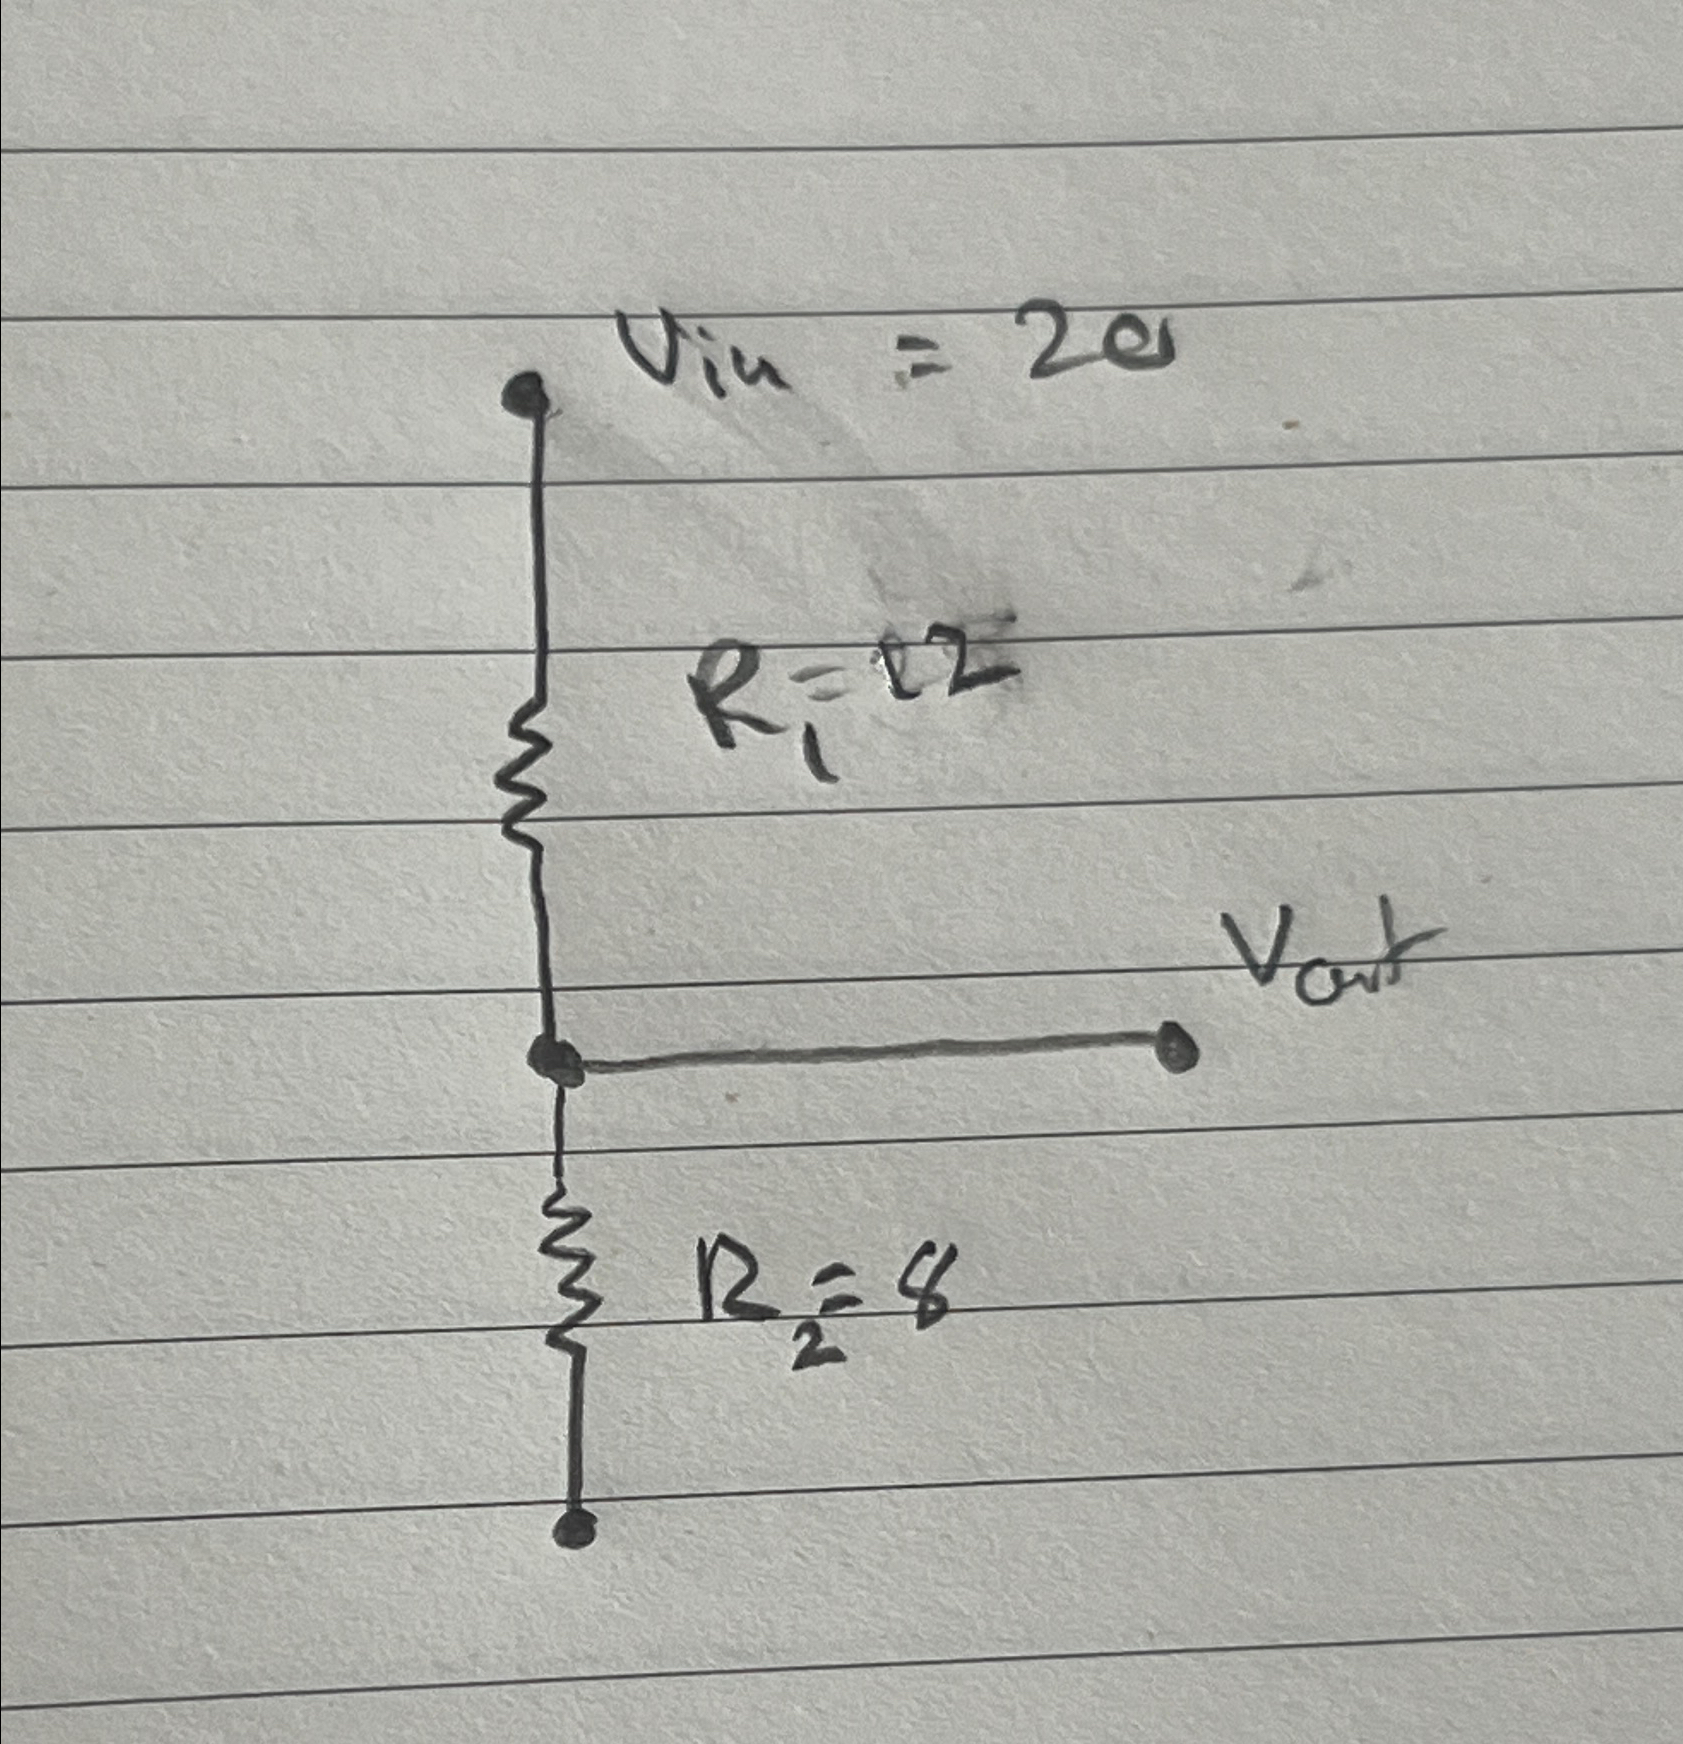 Vin = 20
R1 = 12
Vout
R2 = 8